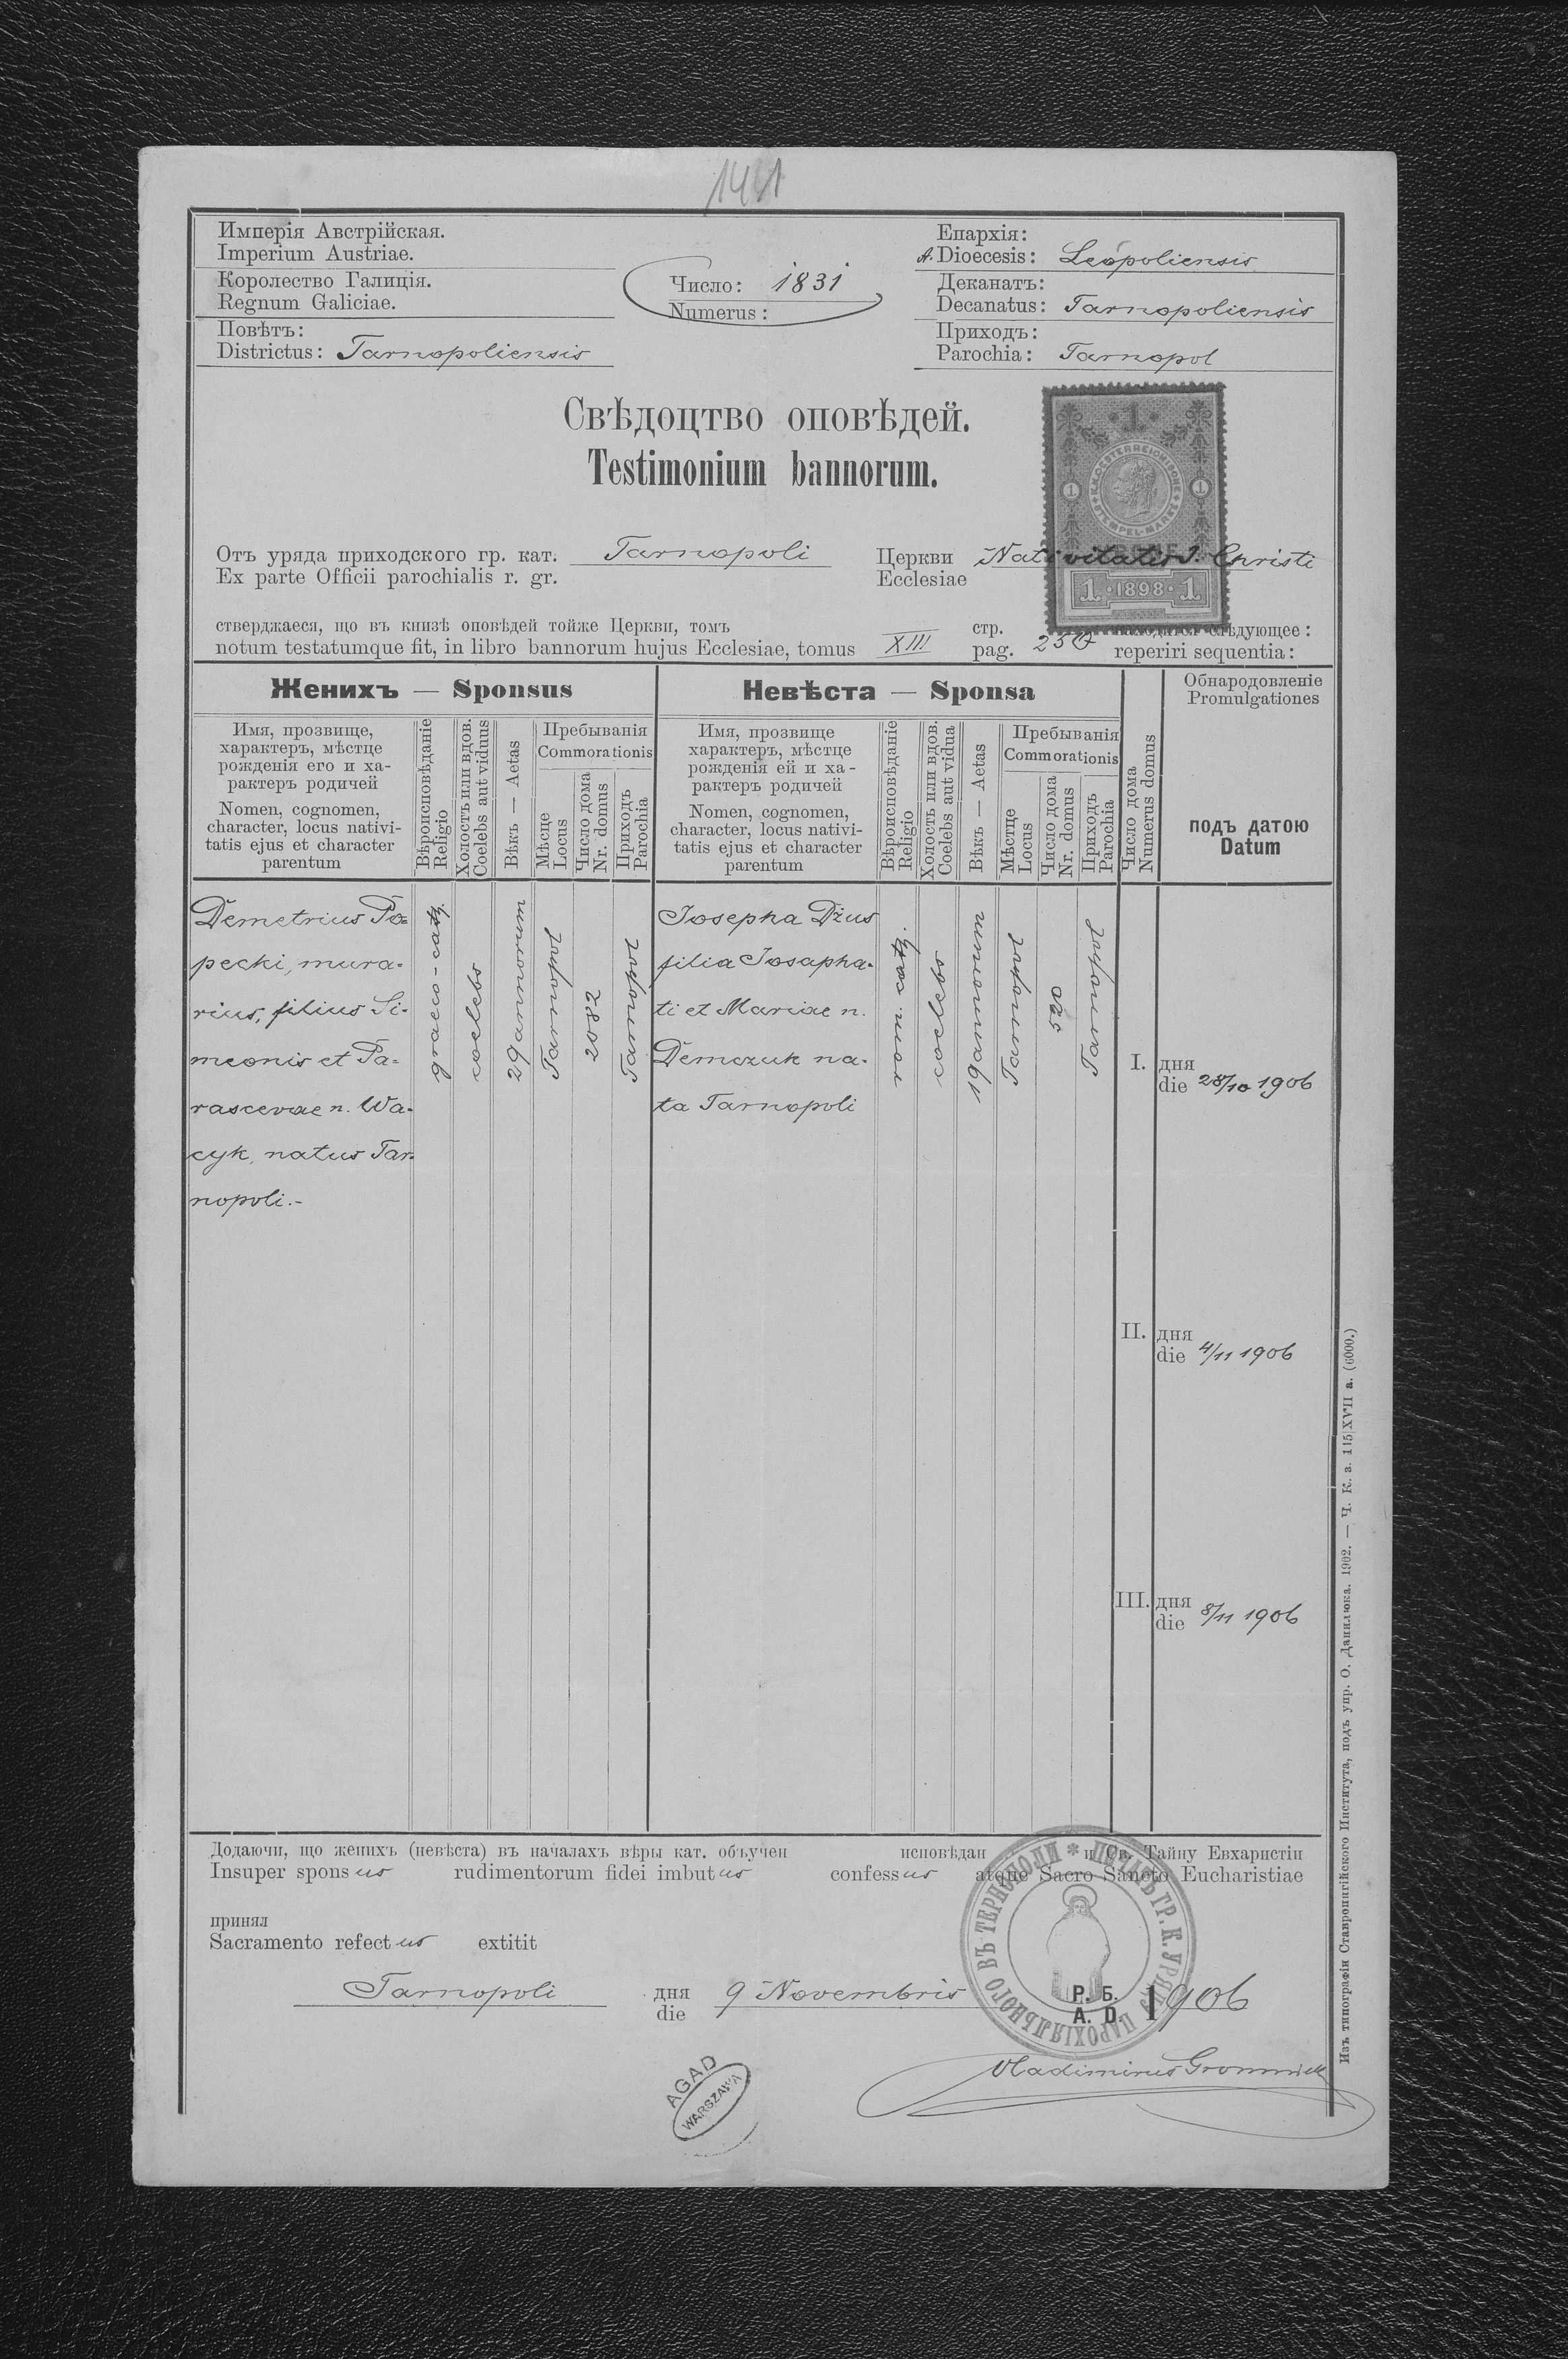 1411
Имперія Австрійская.
Imperium Austriae.
Королество Галиція.
Regnum Galiciae.
Повѣтъ:
Districtus: Tarnopoliensis
Число: 1831
Numerus:
Епархія:
A. Dioecesis: Leopoliensis
Деканатъ:
Decanatus: Tarnopoliensis
Приходъ:
Parochia: Tarnopol
Свѣдоцтво оповѣдей.
Testimonium bannorum.
1
K.K. OESTERREICHISCHE STEMPEL-MARKE
1 1
1 · 1898 · 1
Отъ уряда приходского гр. кат. Tarnopoli Церкви Nativitatis J. Christi
Ex parte Officii parochialis r. gr. Ecclesiae
стверджаеся, що въ книзѣ оповѣдей тойже Церкви, томъ XIII стр. 250 слѣдующее:
notum testatumque fit, in libro bannorum hujus Ecclesiae, tomus pag. reperiri sequentia:
Женихъ — Sponsus
Имя, прозвище,
характеръ, мѣстце
рожденія его и ха-
рактеръ родичей
Nomen, cognomen,
character, locus nativi-
tatis ejus et character
parentum
Вѣроисповѣданіе
Religio
Холостъ или вдов.
Coelebs aut viduus
Вѣкъ — Aetas
Пребыванія
Commorationis
Мѣсце
Locus
Число дома
Nr. domus
Приходъ
Parochia
Невѣста — Sponsa
Имя, прозвище
характеръ, мѣстце
рожденія ей и ха-
рактеръ родичей
Nomen, cognomen,
character, locus nativi-
tatis ejus et character
parentum
Вѣроисповѣданіе
Religio
Холость или вдов.
Coelebs aut vidua
Вѣкъ — Aetas
Пребыванія
Commorationis
Мѣстце
Locus
Число дома
Nr. domus
Приходъ
Parochia
Число дома
Numerus domus
Обнародовленіе
Promulgationes
подъ датою
Datum
Demetrius Po-
pecki, mura-
rius, filius Si-
meonis et Pa-
rascevae n. Wa-
cyk, natus Tar-
nopoli.-
graeco-cath.
coelebs
29 annorum
Tarnopol
2082
Tarnopol
Josepha Dżus
filia Josapha-
ti et Mariae n.
Demczuk na-
ta Tarnopoli
rom. cath.
coelebs
19 annorum
Tarnopol
520
Tarnopol
I. дня
die 28/10 1906
II. дня
die 4/11 1906
III. дня
die 8/11 1906
Додаючи, що женихъ (невѣста) въ началахъ вѣры кат. объучен исповѣдан и Св. Тайну Евхаристіи
Insuper sponsus rudimentorum fidei imbutus confessus atque Sacro Sancto Eucharistiae
принял
Sacramento refectus extitit
Tarnopoli дня 9 Novembris Р. Б. 1906
die A. D.
ПЕЧАТЬ ГР. К. УРЯДУ ПАРОХІЯЛЬНОГО ВЪ ТЕРНОПОЛИ
AGAD
WARSZAWA
Изъ типографіи Ставропигійского Института, подъ упр. О. Данилюка. 1902. — Ч. К. з. 115|XVII а. (6000.)